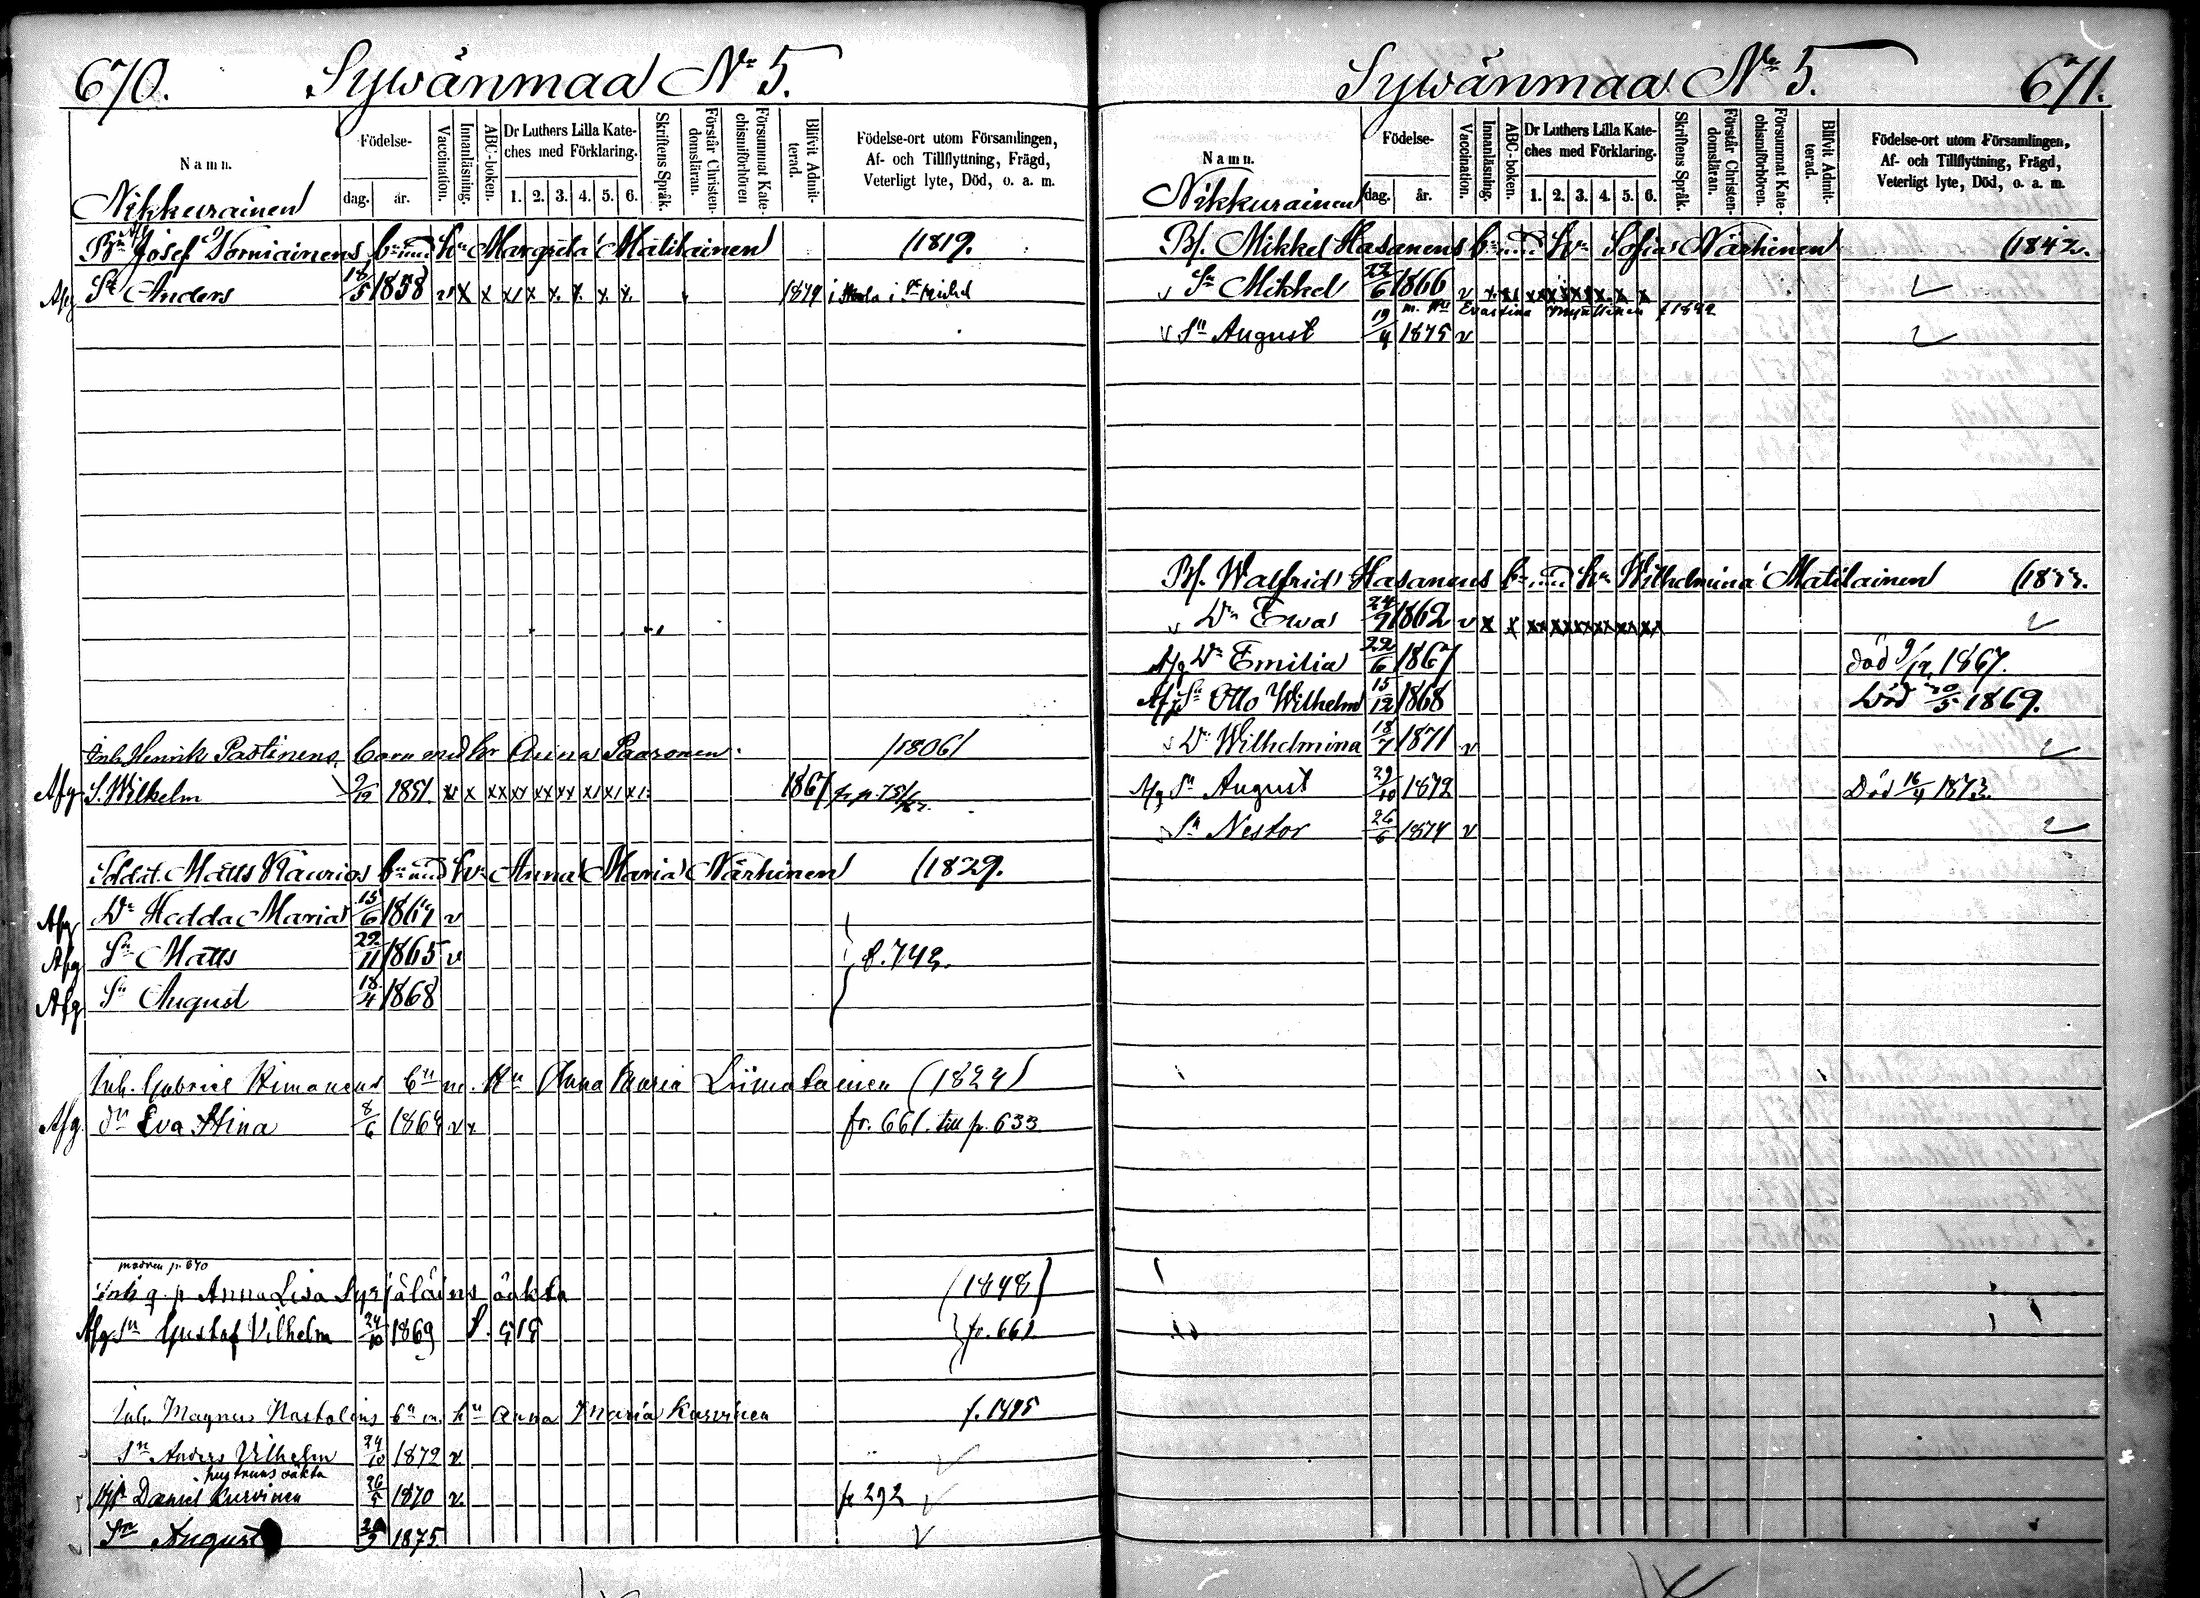 670. Sywänmaa No 5.
Namn.
Födelse-
dag. år.
Vaccination.
Innanläsning.
ABC-boken.
Dr Luthers Lilla Kate-
ches med Förklaring.
1. 2. 3. 4. 5. 6.
Skriftens Språk.
Förstår Christen-
domsläran.
Försummat Kate-
chismiförhören
Blifvit Admit-
terad.
Födelse-ort utom Församlingen,
Af- och Tillflyttning, Frägd,
Veterligt lyte, Död, o. a. m.
Nikkurainen
Josef Torniainens bn med hu Margreta Matilainen (1819.
Afg Sn Anders 18/5 1858 v x x x x x. x. x. x. 1879 i St Michel
Inh. Henrik Pastinens barn med hr Anna Paaronen. (1806)
Afg S. Wilhelm 2/19 1851. 1867
Soldat. Matts Kaurios bn med hu Anna Maria Närhinen (1829.
Afg Dr Hedda Maria 15/6 1861 v
Afg Sn Matts 22/11 1865 v f. 742.
Afg Sn August 18/4 1868
Inh. Gabriel Kimanens bn m. hu Anna Maria Liimatainen (1824)
Afg. dr Eva Stina 8/6 1864 v fr. 661. till p. 633
modren p. 670
Inh q. p Anna Lisa Syrjäläins oäkta (1848)
Afg Sn Gustaf Vilhelm 24/10 1869 f. 515 fr. 661
Inh. Magnus Nastolins bn m. hu Anna Maria Kurvinen f. 1495
Sn Anders Vilhelm 24/10 1872 v
hustruns oäkta
Daniel Kurvinen 26/5 1870 v. fr 292
Sn August 1875.
Sywänmaa No 5. 671.
Namn.
Födelse-
dag. år.
Vaccination.
Innanläsning.
ABC-boken.
Dr Luthers Lilla Kate-
ches med Förklaring.
1. 2. 3. 4. 5. 6.
Skriftens Språk.
Förstår Christen-
domsläran.
Försummat Kate-
chismiförhören.
Blifvit Admit-
terad.
Födelse-ort utom Församlingen,
Af- och Tillflyttning, Frägd,
Veterligt lyte, Död, o. a. m.
Nikkurainen
Bf. Mikkel Hasanens bn med hu Sofia Närhinen (1842.
v Sn Mikkel 22/6 1866 v
v Sn August 19/4 1875 v
Bf. Walfrid Hasanens bn med hu Wilhelmina Matilainen
v Dr Ewa 24/9 1862 v
Afg Dr Emilia 22/6 1867 död 9/12 1867.
Afg Sn Otto Wilhelm 15/12 1868 Död 1869.
v Dr Wilhelmina 18/7 1871 v
Afg Sn August 29/10 1872 Död 16/4 1873.
v Sn Nestor 26/6 1874 v